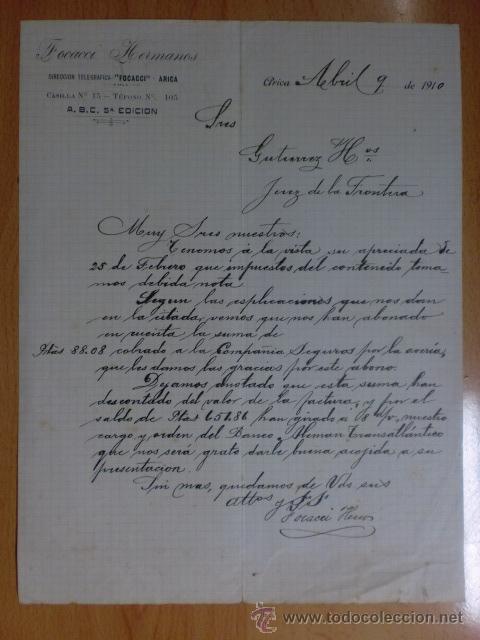 Focacci Hermanos
DIRECCION TELEGRAFICA "FOCACCI" - ARICA
CASILLA Nº 15 — TÉFONO Nº. 105
A. B. C. 5ª EDICION
Arica Abril 9 de 1910
Sres
Gutierrez Hos
Jerez de la Frontera
Muy Sres nuestros:
Tenemos á la vista su apreciada de
25 de Febrero que impuestos del contenido toma-
mos debida nota
Segun las esplicaciones que nos dan
en la citada, vemos que nos han abonado
en cuenta la suma de
Ptas 88.08 cobrado a la Compañia Seguros por la averia,
que les damos las gracias por este abono.
Dejamos anotado que esta suma han
descontado del valor de la factura, y por el
saldo de Ptas 654.86 han girado a d/v, nuestro
cargo y orden del Banco Aleman Transatlántico
que nos será grato darle buena acojida a su
presentacion.
Sin mas, quedamos de Vds sus
attos y S S
Focacci Hnos
www.todocoleccion.net